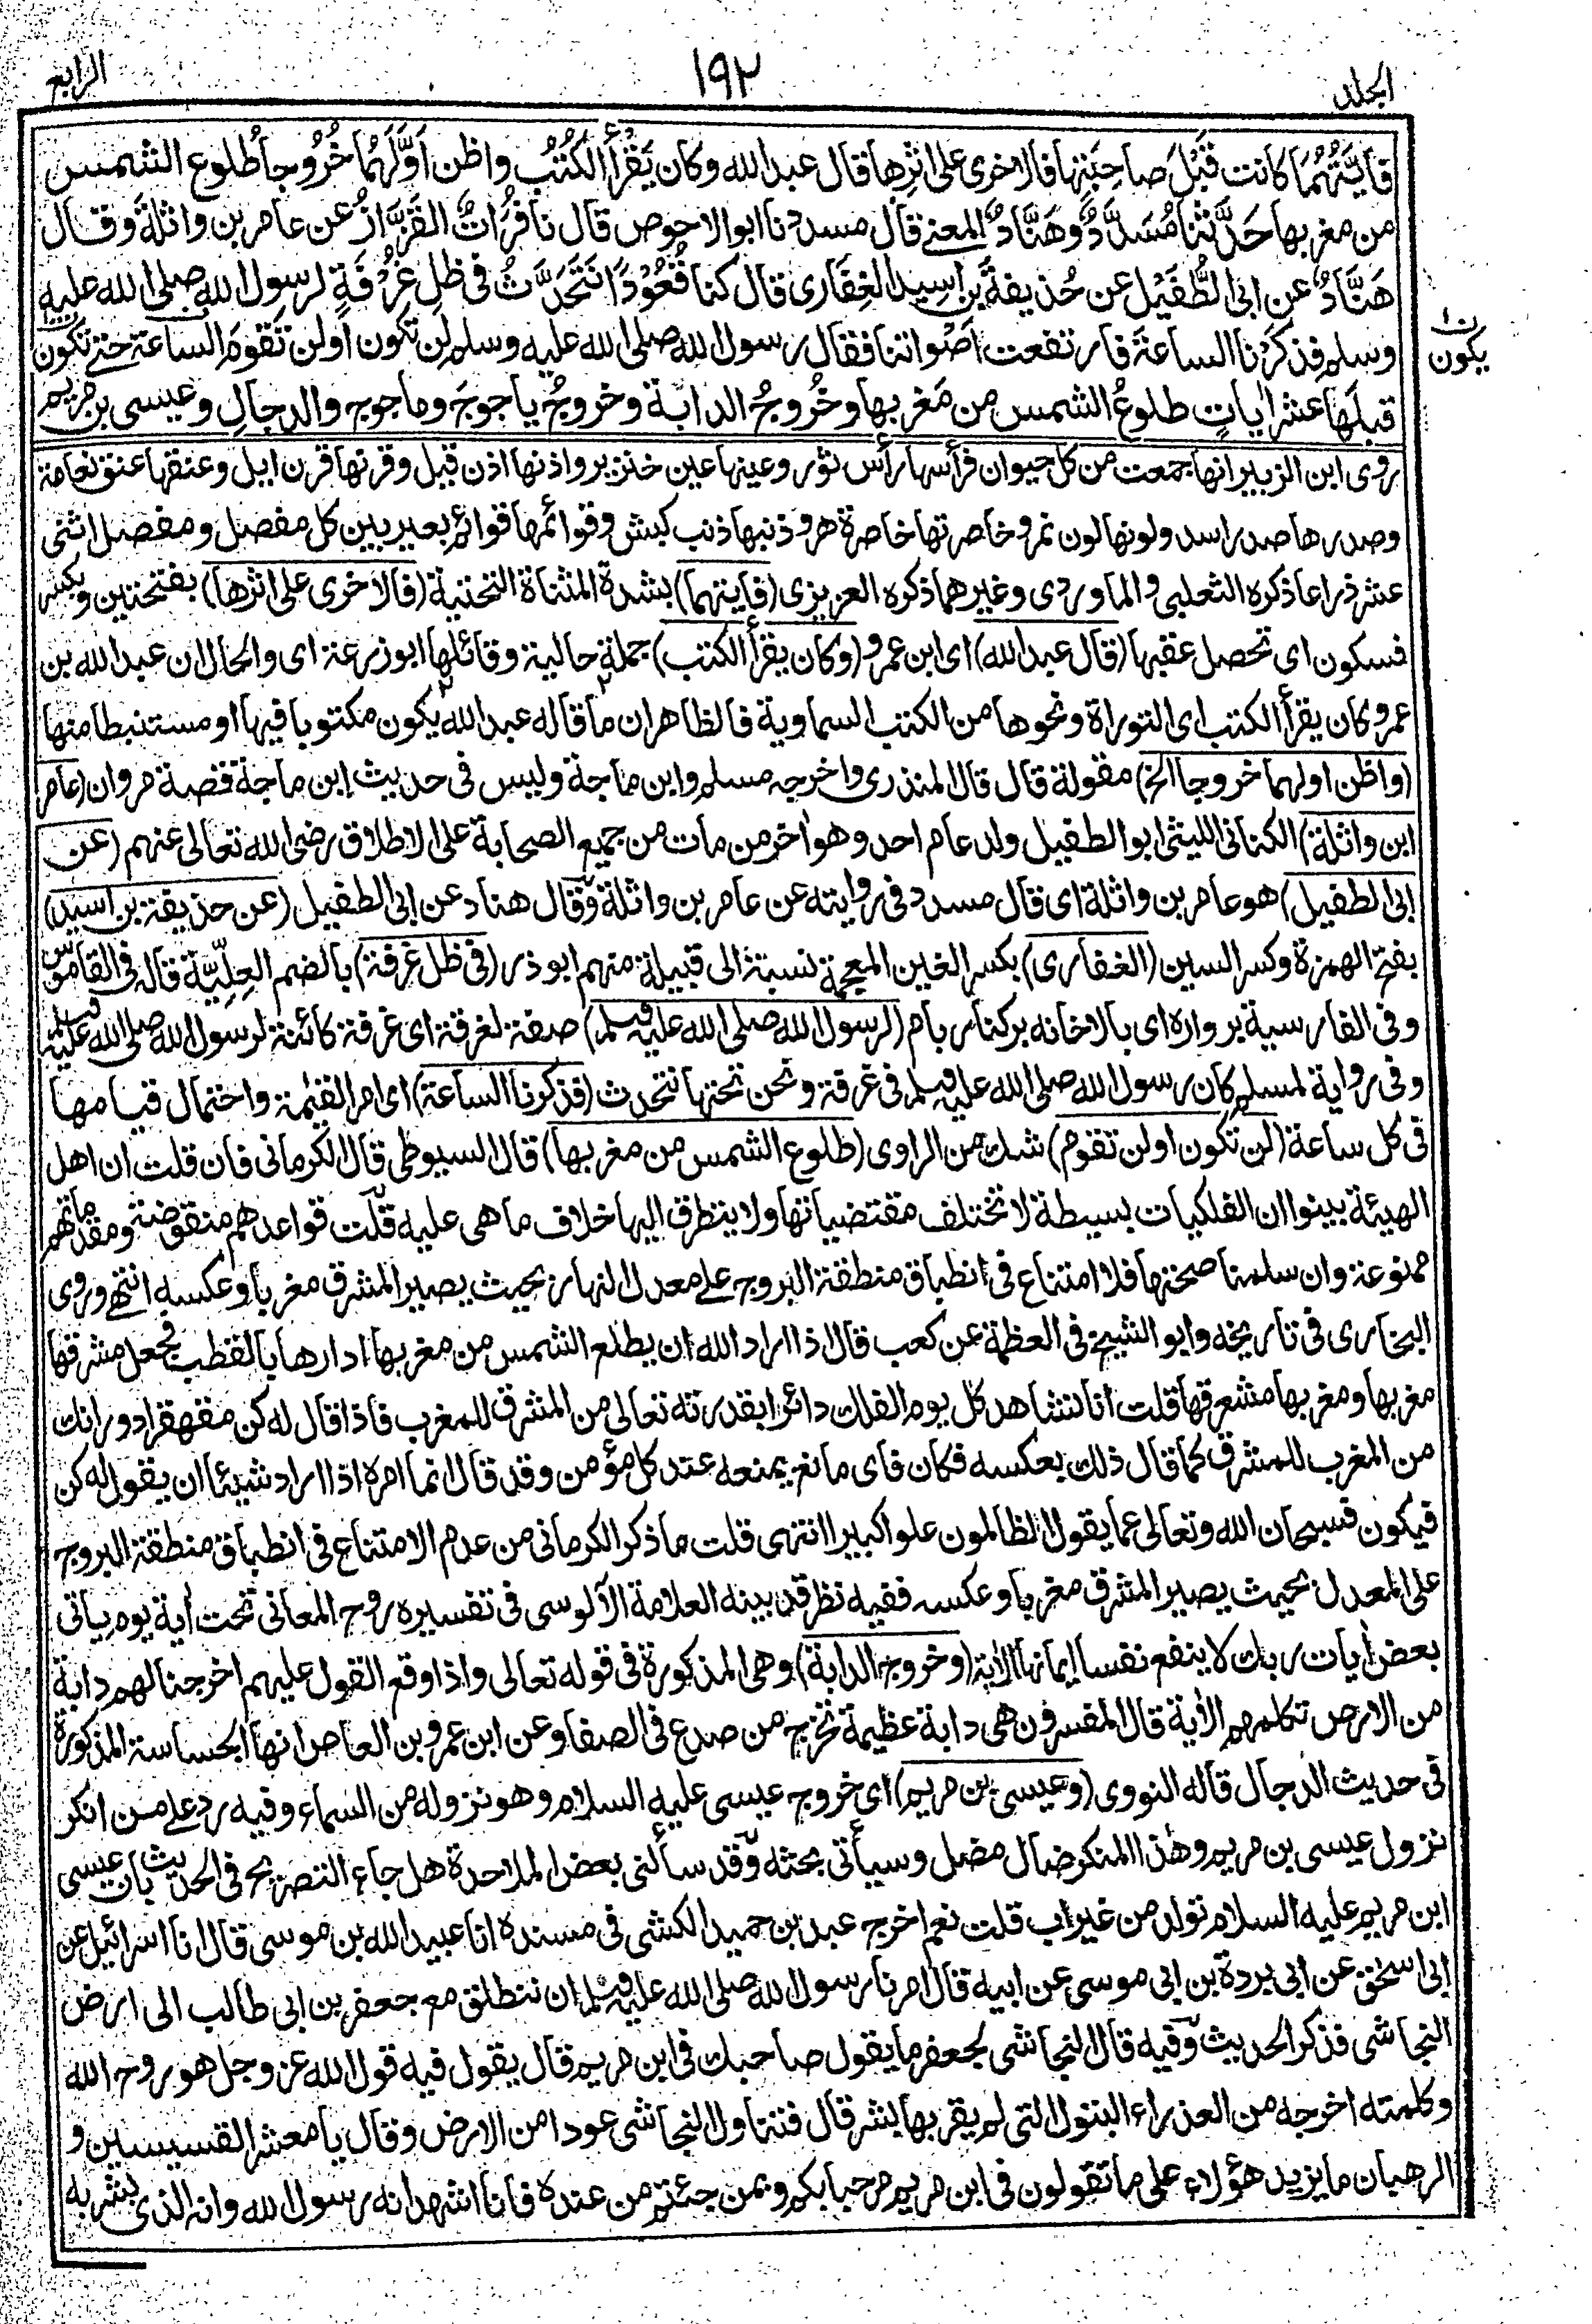 المجلد
١٩٢
الرابع
فَأَيَّتُهُمَا كانت قَبْلَ صَاحِبَتِها فالاخرى على اثرِها قال عبد الله وكان يَقْرَأُ الكُتُبَ واظن اَوَّلَهُمَا خُرُوجاً طُلوع الشمس
من مغربها حَدَّثَنَا مُسَدَّدٌ وهَنَّادٌ المعنے قال مسدد نا ابو الاحوص قال نا فُرَاتٌ القَزَّازُ عن عامر بن واثلةَ وقال
هَنَّادٌ عن ابى الطُّفَيْلِ عن حُذيفةَ بن اَسِيدٍ الغِفَارى قال كنا قُعُوْدًا نَتَحَدَّثُ فى ظلِ غُرْفَةٍ لرسول الله صلى الله عليه
وسلم فذكَرْنا الساعةَ فارتفعت اَصْواتنا فقال رسول الله صلى الله عليه وسلم لن تكون او لن تَقومَ الساعة حتے تكون
ن١ يكون
قبلَها عشر اٰياتٍ طلوعُ الشمس من مَغربها وخُرُوجُ الدابة وخروجُ ياجوجَ وماجوج والدجالِ وعيسى بن مريم
روى ابن الزبير انها جمعت من كل حيوان فرأسها رأس ثور وعينها عين خنزير واذنها اذن فيل وقرنها قرن ايل وعنقها عنق نعامة
وصدرها صدر اسد ولونها لون نمر وخاصرتها خاصرة هر وذنبها ذنب كبش وقوائمها قوائم بعير بين كل مفصل ومفصل اثنى
عشر ذراعا ذكره الثعلبى والماوردى وغيرهما ذكره العزيزى (فايتهما) بشدة المثناة التحتية (فالاخرى على اثرها) بفتحتين وبكسر
فسكون اى تحصل عقبها (قال عبد الله) اى ابن عمرو (وكان يقرأ الكتب) جملة حالية وقائلها ابو زرعة اى والحال ان عبد الله بن
عمرو كان يقرأ الكتب اى التوراة ونحوها من الكتب السماوية فالظاهر ان ما قاله عبد الله يكون مكتوبا فيها او مستنبطا منها
(واظن اولهما خروجا الخ) مقولة قال قال المنذرى واخرجه مسلم وابن ماجة وليس فى حديث ابن ماجة قصة مروان (عامر
ابن واثلة) الكنانى الليثى ابو الطفيل ولد عام احد وهو اٰخر من مات من جميع الصحابة على الاطلاق رضى الله تعالى عنهم (عن
ابى الطفيل) هو عامر بن واثلة اى قال مسدد فى روايته عن عامر بن واثلة وقال هناد عن ابى الطفيل (عن حذيفة بن اسيد)
بفتح الهمزة وكسر السين (الغفارى) بكسر الغين المعجمة نسبة الى قبيلة منهم ابو ذر (فى ظل غرفة) بالضم العِلِّيَّة قاله فى القاموس
وفى الفارسية برواره اى بالاخانه بر كنار بام (لرسول الله صلى الله عليه وسلم) صفة لغرفة اى غرفة كائنة لرسول الله صلى الله عليه وسلم
وفى رواية لمسلم كان رسول الله صلى الله عليه وسلم فى غرفة ونحن تحتها نتحدث (فذكرنا الساعة) اى امر القيٰمة واحتمال قيامها
فى كل ساعة (لن تكون او لن تقوم) شك من الراوى (طلوع الشمس من مغربها) قال السيوطى قال الكرمانى فان قلت ان اهل
الهيئة بينوا ان الفلكيات بسيطة لا تختلف مقتضياتها ولا يتطرق اليها خلاف ما هى عليه قلت قواعدهم منقوضة ومقدماتهم
ممنوعة وان سلمنا صحتها فلا امتناع فى انطباق منطقة البروج على معدل النهار بحيث يصير المشرق مغربا وعكسه انتهے وروى
البخارى فى تاريخه وابو الشيخ فى العظمة عن كعب قال اذا اراد الله ان يطلع الشمس من مغربها ادارها بالقطب فجعل مشرقها
مغربها ومغربها مشرقها قلت انا لنشاهد كل يوم الفلك دائرا بقدرته تعالى من المشرق للمغرب فاذا قال له كن مقهقرا دورانك
من المغرب للمشرق كما قال ذلك بعكسه فكان فاى مانع يمنعه عند كل مؤمن وقد قال انما امره اذا اراد شيئا ان يقول له كن
فيكون فسبحان الله وتعالى عما يقول الظالمون علوا كبيرا انتهى قلت ما ذكر الكرمانى من عدم الامتناع فى انطباق منطقة البروج
على المعدل بحيث يصير المشرق مغربا وعكسه ففيه نظر قد بينه العلامة الآلوسى فى تفسيره روح المعانى تحت اٰية يوم ياتى
بعض اٰيات ربك لا ينفع نفسا ايمانها الاٰية (وخروج الدابة) وهى المذكورة فى قوله تعالى واذا وقع القول عليهم اخرجنا لهم دابة
من الارض تكلمهم الاٰية قال المفسرون هى دابة عظيمة تخرج من صدع فى الصفا وعن ابن عمرو بن العاص انها الجساسة المذكورة
فى حديث الدجال قاله النووى (وعيسى بن مريم) اى خروج عيسى عليه السلام وهو نزوله من السماء وفيه رد على من انكر
نزول عيسى بن مريم وهٰذا المنكر ضال مضل وسيأتى بحثه وقد سألنى بعض الملاحدة هل جاء التصريح فى الحديث بان عيسى
ابن مريم عليه السلام تولد من غير اب قلت نعم اخرج عبد بن حميد الكشى فى مسنده انا عبيد الله بن موسى قال انا اسرائيل عن
ابى اسحٰق عن ابى بردة بن ابى موسى عن ابيه قال امرنا رسول الله صلى الله عليه وسلم ان ننطلق مع جعفر بن ابى طالب الى ارض
النجاشى فذكر الحديث وفيه قال النجاشى لجعفر ما يقول صاحبك فى ابن مريم قال يقول فيه قول الله عز وجل هو روح الله
وكلمته اخرجه من العذراء البتول التى لم يقربها بشر قال فتناول النجاشى عودا من الارض وقال يا معشر القسيسين و
الرهبان ما يزيد هؤلاء على ما تقولون فى ابن مريم مرحبا بكم وبمن جئتم من عنده فانا اشهد انه رسول الله وانه الذى بشر به